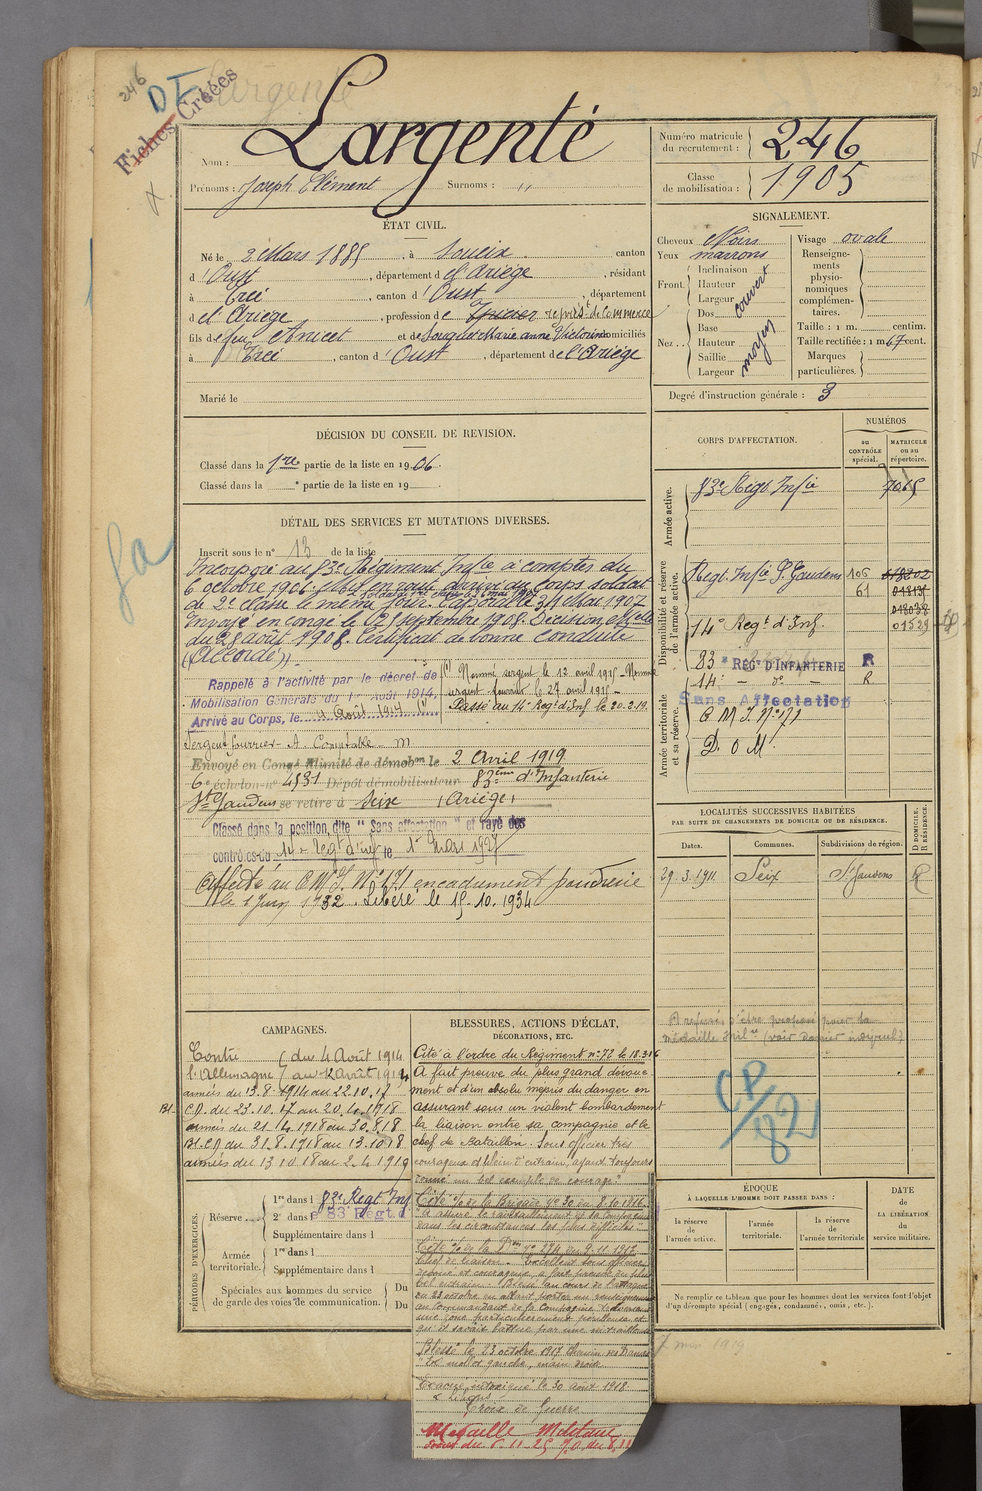 246
DI
Fiches Créées
Nom : Largenté
Prénoms : Joseph Clément Surnoms : "
Numéro matricule du recrutement : 246
Classe de mobilisation : 1905
ÉTAT CIVIL.
Né le 2 Mars 1885, à Soueix, canton
d'Oust, département de l'Ariège, résidant
à Ercé, canton d'Oust, département
de l'Ariège, profession de représt de Commerce
fils de feu Anicet et de Souquet Marie anne Victorine domiciliés
à Ercé, canton d'Oust, département de l'Ariège
Marié le
SIGNALEMENT.
Cheveux Noirs
Yeux marrons
Front. Inclinaison
Hauteur
Largeur
couvert
Nez .. Dos
Base
Hauteur
Saillie
Largeur
moyen
Visage ovale
Renseignements physionomiques complémentaires.
Taille : 1 m. centim.
Taille rectifiée : 1 m 67 cent.
Marques particulières.
Degré d'instruction générale : 3
DÉCISION DU CONSEIL DE REVISION.
Classé dans la 1re partie de la liste en 1906.
Classé dans la e partie de la liste en 19
DÉTAIL DES SERVICES ET MUTATIONS DIVERSES.
Inscrit sous le n° 13 de la liste
Incorporé au 83e Régiment Infie à compter du
6 octobre 1906. Arrivé au Corps soldat
de 2e classe le même jour. Caporal le 24 Mai 1907
Envoyé en congé le 02 septembre 1908. Décision
du 28 août 1908. Certificat de bonne conduite
(Accordé).
Rappelé à l'activité par le décret de
Mobilisation Générale du 1er Août 1914,
Arrivé au Corps, le 4 Août 1914 (1)
(1) Nommé sergent le 12 avril 1915 - Nommé
sergent fourrier le 27 avril 1915 -
Passé au 14e Regt d'Inf le 20.2.19.
Sergent fourrier - A. Comptable - m
Envoyé en Congé illimité de démobon le 2 Avril 1919
6e échelon-n° 4531 Dépôt démobilisateur 83ème d'Infanterie
St Gaudens se retire à Seix (Ariège)
Classé dans la position dite "Sans affectation" et rayé des
contrôles du 14e Regt d'inf le 1er Mars 1927
Affecté au C.M.I. N° 171 encadrement poudrerie
le 1 Juin 1932. Libéré le 15.10.1934
CORPS D'AFFECTATION.
NUMÉROS
au CONTRÔLE spécial.
MATRICULE ou au répertoire.
Armée active.
83e Régt Infie 7065
Disponibilité et réserve de l'armée active.
Regt Infie St Gaudens 106
61
14e Regt d'Inf. 01529
83e RÉGt D'INFANTERIE R
14e - do - R
Sans Affectation
Armée territoriale et sa réserve.
C M I N° 171
D. O M.
LOCALITÉS SUCCESSIVES HABITÉES
PAR SUITE DE CHANGEMENTS DE DOMICILE OU DE RÉSIDENCE.
Dates. Communes. Subdivisions de région. D DOMICILE. R RÉSIDENCE.
29.3.1911 Seix St Gaudens R
CP/82
CAMPAGNES.
Contre du 4 Août 1914
l'Allemagne au 12 Août 1914
armées du 13.8.1914 au 22.10.17
Bl. C.D. du 23.10.17 au 20.4.1918
armées du 21.4.1918 au 30.8.18
Bl. C.D du 31.8.1918 au 13.10.18
armées du 13 10 18 au 2.4.1919
BLESSURES, ACTIONS D'ÉCLAT,
DÉCORATIONS, ETC.
Cité à l'ordre du Régiment n° 72 le 18.3.16
A fait preuve du plus grand dévoue
ment et d'un absolu mépris du danger en
assurant sous un violent bombardement
la liaison entre sa compagnie et le
chef de Bataillon. Sous officier très
courageux et plein d'entrain, ayant toujours
donné un bel exemple de courage"
Cité à l'o de la Brigade N° 30 du 8.10.1916
"a assuré le ravitaillement de sa Compagnie
dans les circonstances les plus difficiles"
Cité à l'o de la Don N° 274 du 9.11.1917
chef de liaison. Excellent sous officier
dévoué et courageux, a fait preuve du plus
bel entrain. Blessé au cours de l'attaque
du 23 octobre en allant porter un renseignement
au commandant de la Compagnie traversant
une zone particulièrement périlleuse et
qu'il savait battue par une mitrailleuse
Blessé le 23 octobre 1917 Chemin des Dames
mollet gauche, main droite
Evacué, intoxiqué le 30 août 1918
Croix de Guerre
Médaille Militaire
PÉRIODES D'EXERCICES.
Réserve .... 1re dans l 83e Regt Inf
2e dans le 83e Régt d'
Supplémentaire dans l
Armée territoriale. 1re dans l
Supplémentaire dans l
Spéciales aux hommes du service
de garde des voies de communication. Du
Du
ÉPOQUE
À LAQUELLE L'HOMME DOIT PASSER DANS :
la réserve de l'armée active.
l'armée territoriale.
la réserve de l'armée territoriale
DATE de LA LIBÉRATION du service militaire.
Ne remplir ce tableau que pour les hommes dont les services font l'objet
d'un décompte spécial (engagés, condamnés, omis, etc.).